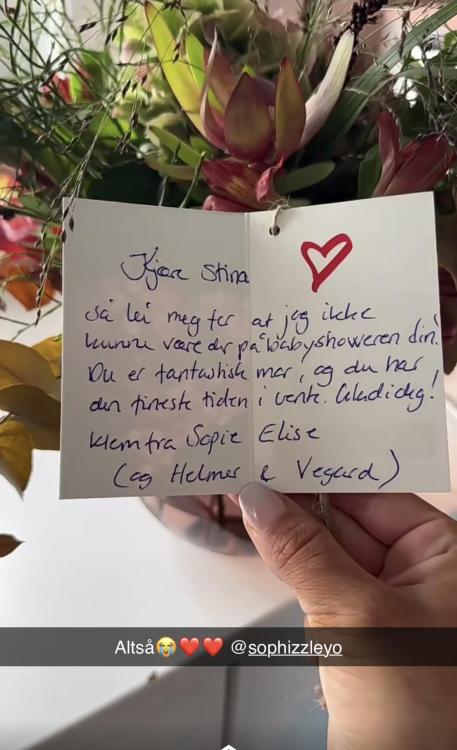 Kjære Stina
Så lei meg for at jeg ikke
kunne være der på babyshoweren din!
Du er fantastisk mor, og du har
den fineste tiden i vente. Glad i deg!
Klem fra Sopie Elise
(og Helmer & Vegard)
Altså😭❤️❤️ @sophizzleyo